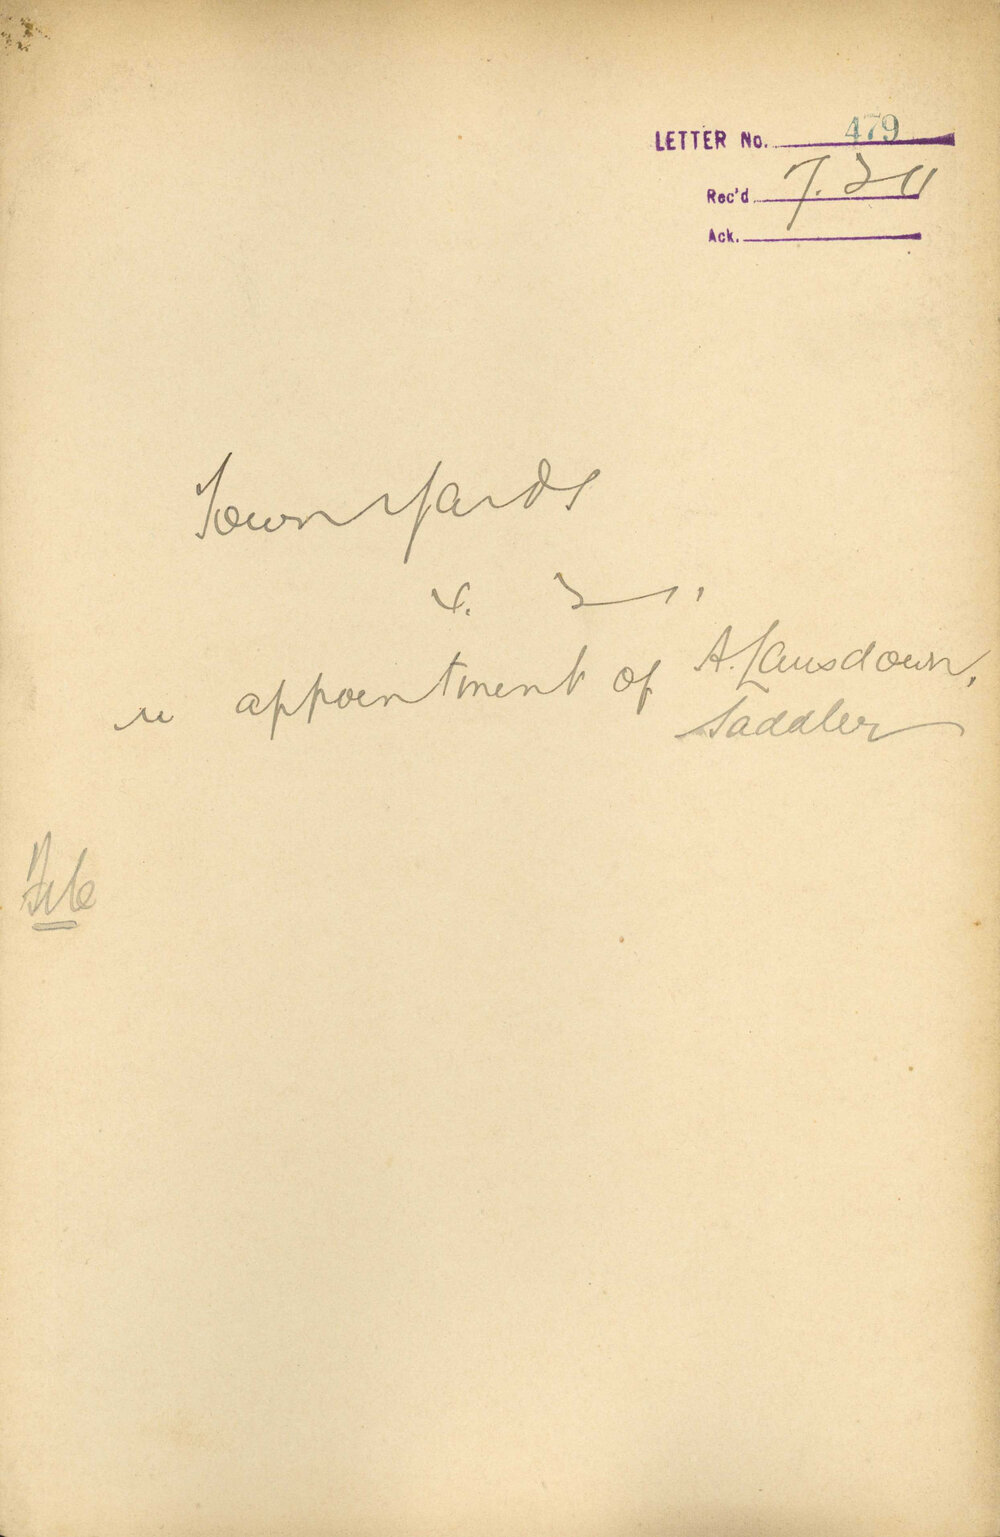 LETTER No. 479
Rec'd 7.3.11
Ack.
Town Yards
re appointment of A. Lansdown,
Saddler
File